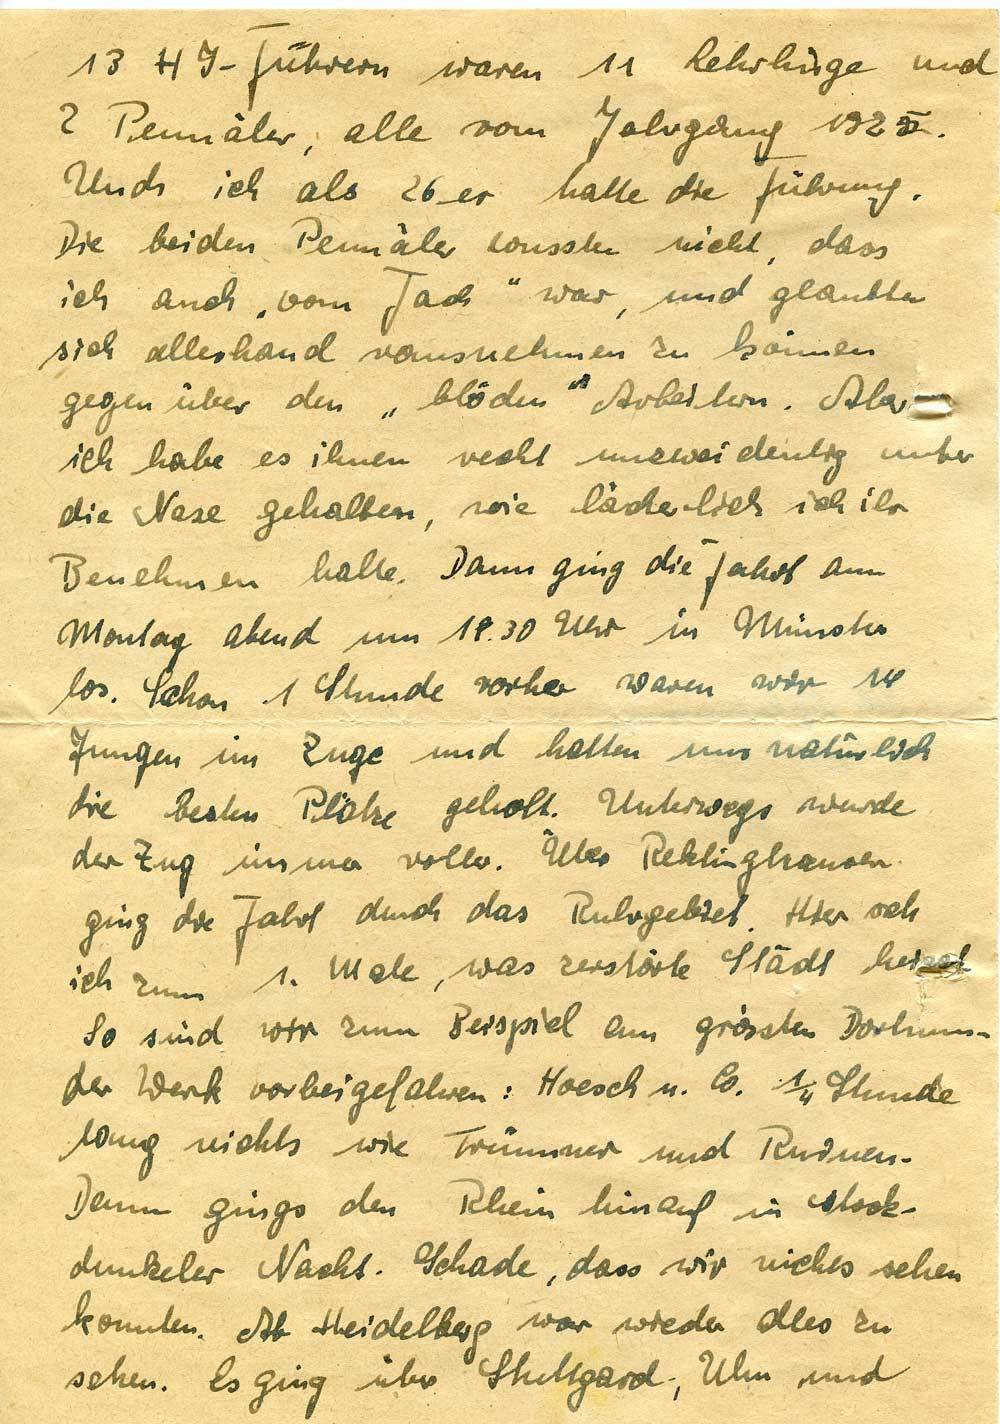 13 HJ-Führern waren 11 Lehrlinge und
2 Pennäler, alle vom Jahrgang 192
Und ich als 26er hatte die Führung.
Die beiden Pennäler wussten nicht, dass
ich auch „vom Fach" war, und glaubten
sich allerhand rausnehmen zu können
gegenüber den „blöden" Arbeitern. Aber
ich habe es ihnen recht unzweideutig unter
die Nase gehalten, wie lächerlich ich ihr
Benehmen halte. Dann ging die Fahrt am
Montag abend um 19.30 Uhr in Münster
los. Schon 1 Stunde vorher waren wir 14
Jungen im Zuge und hatten uns natürlich
die besten Plätze geholt. Unterwegs wurde
der Zug immer voller. Über Reklinghausen
ging die Fahrt durch das Ruhrgebiet. Hier sah
ich zum 1. Male, was zerstörte Städt heisst
So sind wir zum Beispiel am grössten Dortmun-
der Werk vorbeigefahren: Hoesch u. Co. 1/4 Stunde
lang nichts wie Trümmer und Ruinen.
Dann gings den Rhein hinauf in stock-
dunkeler Nacht. Schade, dass wir nichts sehen
konnten. Ab Heidelberg war wieder alles zu
sehen. Es ging über Stuttgard, Ulm und